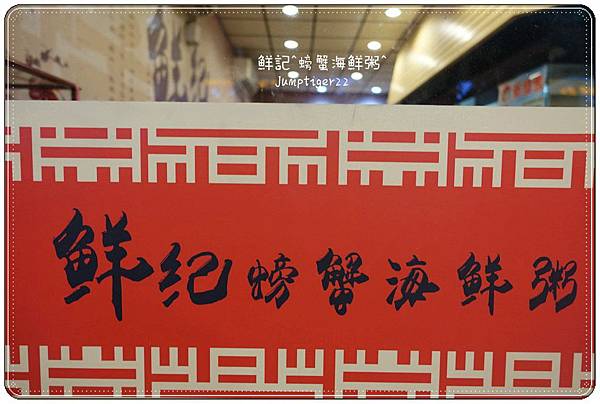 鮮記^螃蟹海鮮粥^
Jumptiger22
鮮紀螃蟹海鮮粥